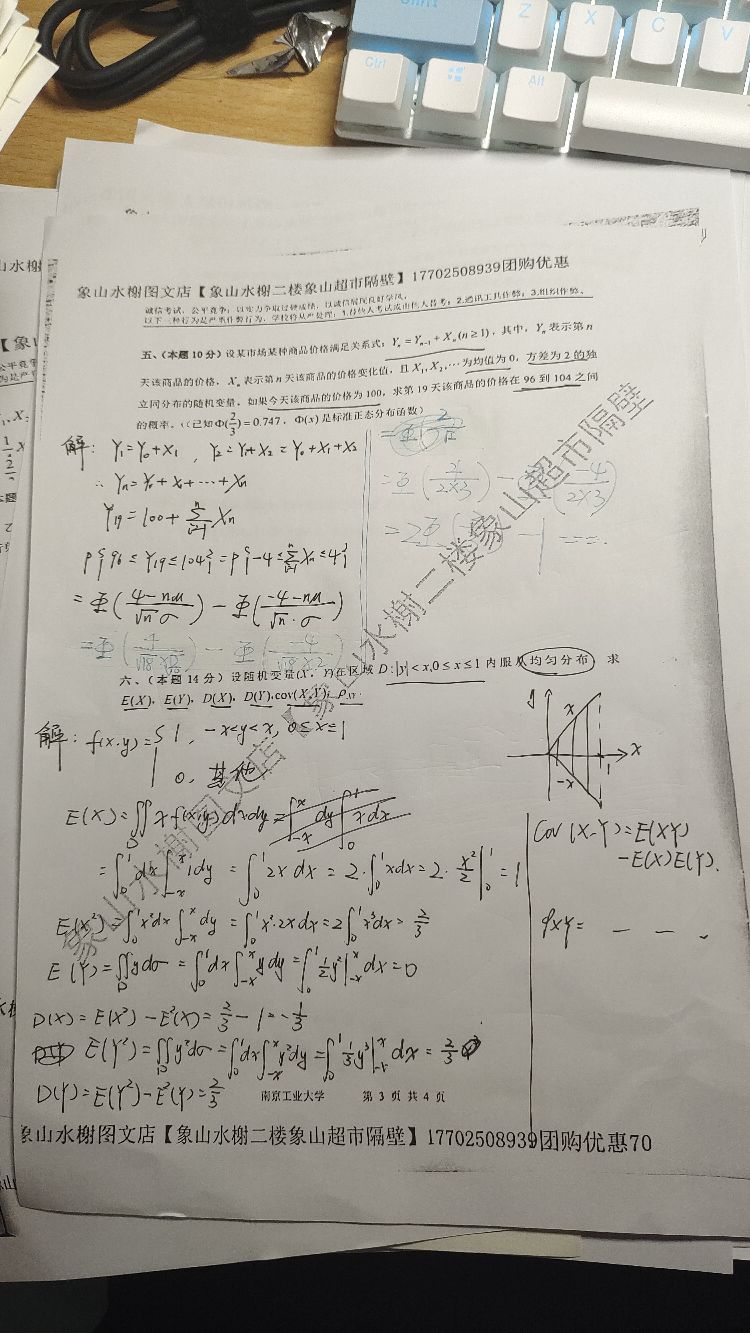 Shift
Z
X
C
V
Ctrl
Alt
象山水榭图文店【象山水榭二楼象山超市隔壁】17702508939团购优惠
诚信考试，公平竞争；以实力争取过硬成绩，以诚信展现良好学风。
以下三种行为是严重作弊行为，学校将从严处理：1.替他人考试或由他人替考；2.通讯工具作弊；3.组织作弊。
五、（本题 10 分）设某市场某种商品价格满足关系式：Yₙ=Yₙ₋₁+Xₙ(n≥1)，其中，Yₙ 表示第 n
天该商品的价格，Xₙ 表示第 n 天该商品的价格变化值，且 X₁,X₂,⋯为均值为 0，方差为 2 的独
立同分布的随机变量。如果今天该商品的价格为 100，求第 19 天该商品的价格在 96 到 104 之间
的概率。（（已知 Φ(2/3)=0.747，Φ(x) 是标准正态分布函数）
解：Y₁=Y₀+X₁ , Y₂=Y₁+X₂=Y₀+X₁+X₂
∴ Yₙ=Y₀+X₁+⋯+Xₙ
Y₁₉=100+ΣXₙ
P{96≤Y₁₉≤104}=P{-4≤ΣXₙ≤4}
=Φ((4-nμ)/(√n σ))-Φ((-4-nμ)/(√n·σ))
=Φ(4/(2×3)) - Φ(-4/(2×3))
六、（本题 14 分）设随机变量(X，Y)在区域 D:|y|<x,0≤x≤1 内服从均匀分布 求
E(X)，E(Y)，D(X)，D(Y),cov(X,Y)；ρXY
解：f(x,y)={1, -x<y<x, 0≤x≤1
0, 其他
y
x
-x
1
x
E(X)=∬xf(x,y)dxdy=∫dy∫xdx
=∫₀¹dx∫₋ₓˣ1dy=∫₀¹2xdx=2·∫₀¹xdx=2·x²/2|₀¹=1
E(X²)=∫₀¹x²dx∫₋ₓˣdy=∫₀¹x²·2xdx=2∫₀¹x³dx=2/3
E(Y)=∬ydσ=∫₀¹dx∫₋ₓˣydy=∫₀¹½y²|₋ₓˣdx=0
D(X)=E(X²)-E²(X)=2/3-1=-1/3
E(Y²)=∬y²dσ=∫₀¹dx∫₋ₓˣy²dy=∫₀¹⅓y³|₋ₓˣdx=2/3
D(Y)=E(Y²)-E²(Y)=2/3
Cov(X,Y)=E(XY)
-E(X)E(Y).
ρXY=
南京工业大学 第 3 页 共 4 页
象山水榭图文店【象山水榭二楼象山超市隔壁】17702508939团购优惠70
象山水榭图文店【象山水榭二楼象山超市隔壁